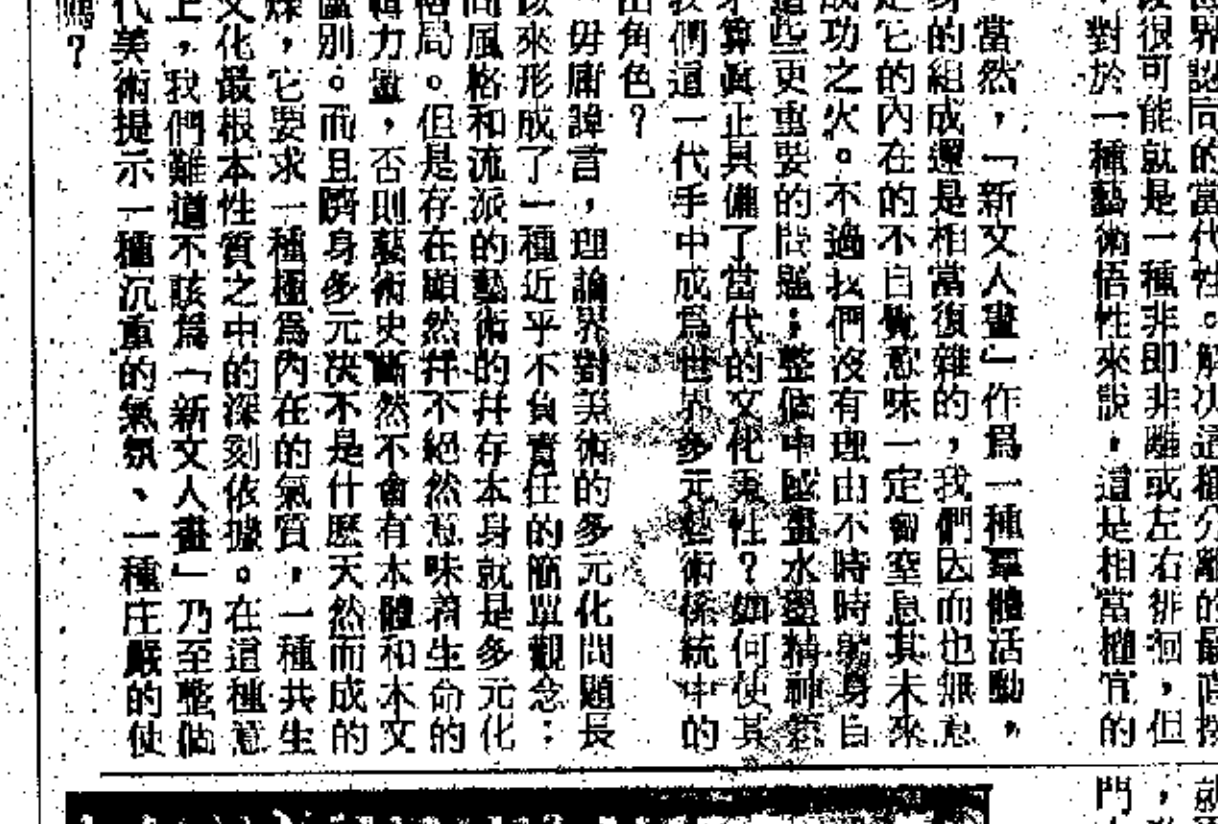 世界認同的當代性。解決這種分離的最直接
度很可能就是一種非即非離或左右徘徊，但
，對於一種藝術悟性來說，這是相當權宜的
當然，「新文人畫」作爲一種羣體活動，
身的組成還是相當復雜的，我們因而也無意
定它的內在的不自覺意味一定會窒息其未來
成功之火。不過我們沒有理由不時時躬身自
這些更重要的問題；整個中國畫水墨精神
才算眞正具備了當代的文化秉性？如何使其
我們這一代手中成爲世界多元藝術係統中的
出角色？
毋庸諱言，理論界對美術的多元化問題長
以來形成了一種近乎不負責任的簡單觀念：
同風格和流派的藝術的幷存本身就是多元化
格局。但是存在顯然幷不絕然意味着生命的
輯力量，否則藝術史斷然不會有本體和本文
區別。而且躋身多元決不是什麽天然而成的
，它要求一種極爲內在的氣質，一種共生
文化最根本性質之中的深刻依據。在這種意
上，我們難道不該爲「新文人畫」乃至整個
代美術提示一種沉重的氣氛、一種庄嚴的使
嗎？
門，